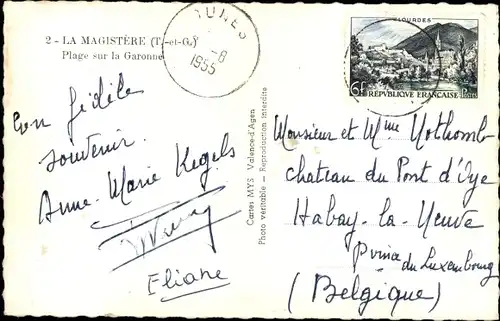 2 - LA MAGISTÈRE (T.-et-G.)
Plage sur la Garonne
-8
1955
LOURDES
6F
RÉPUBLIQUE FRANÇAISE
Postes
En fidèle
souvenir
Anne-Marie Kegels
Eliane
Cartes MYS Valence-d'Agen
Photo véritable — Reproduction interdite
Monsieur et Mme Nothomb
chateau du Pont d'Oye
Habay-la-Neuve
Prince du Luxembourg
(Belgique)